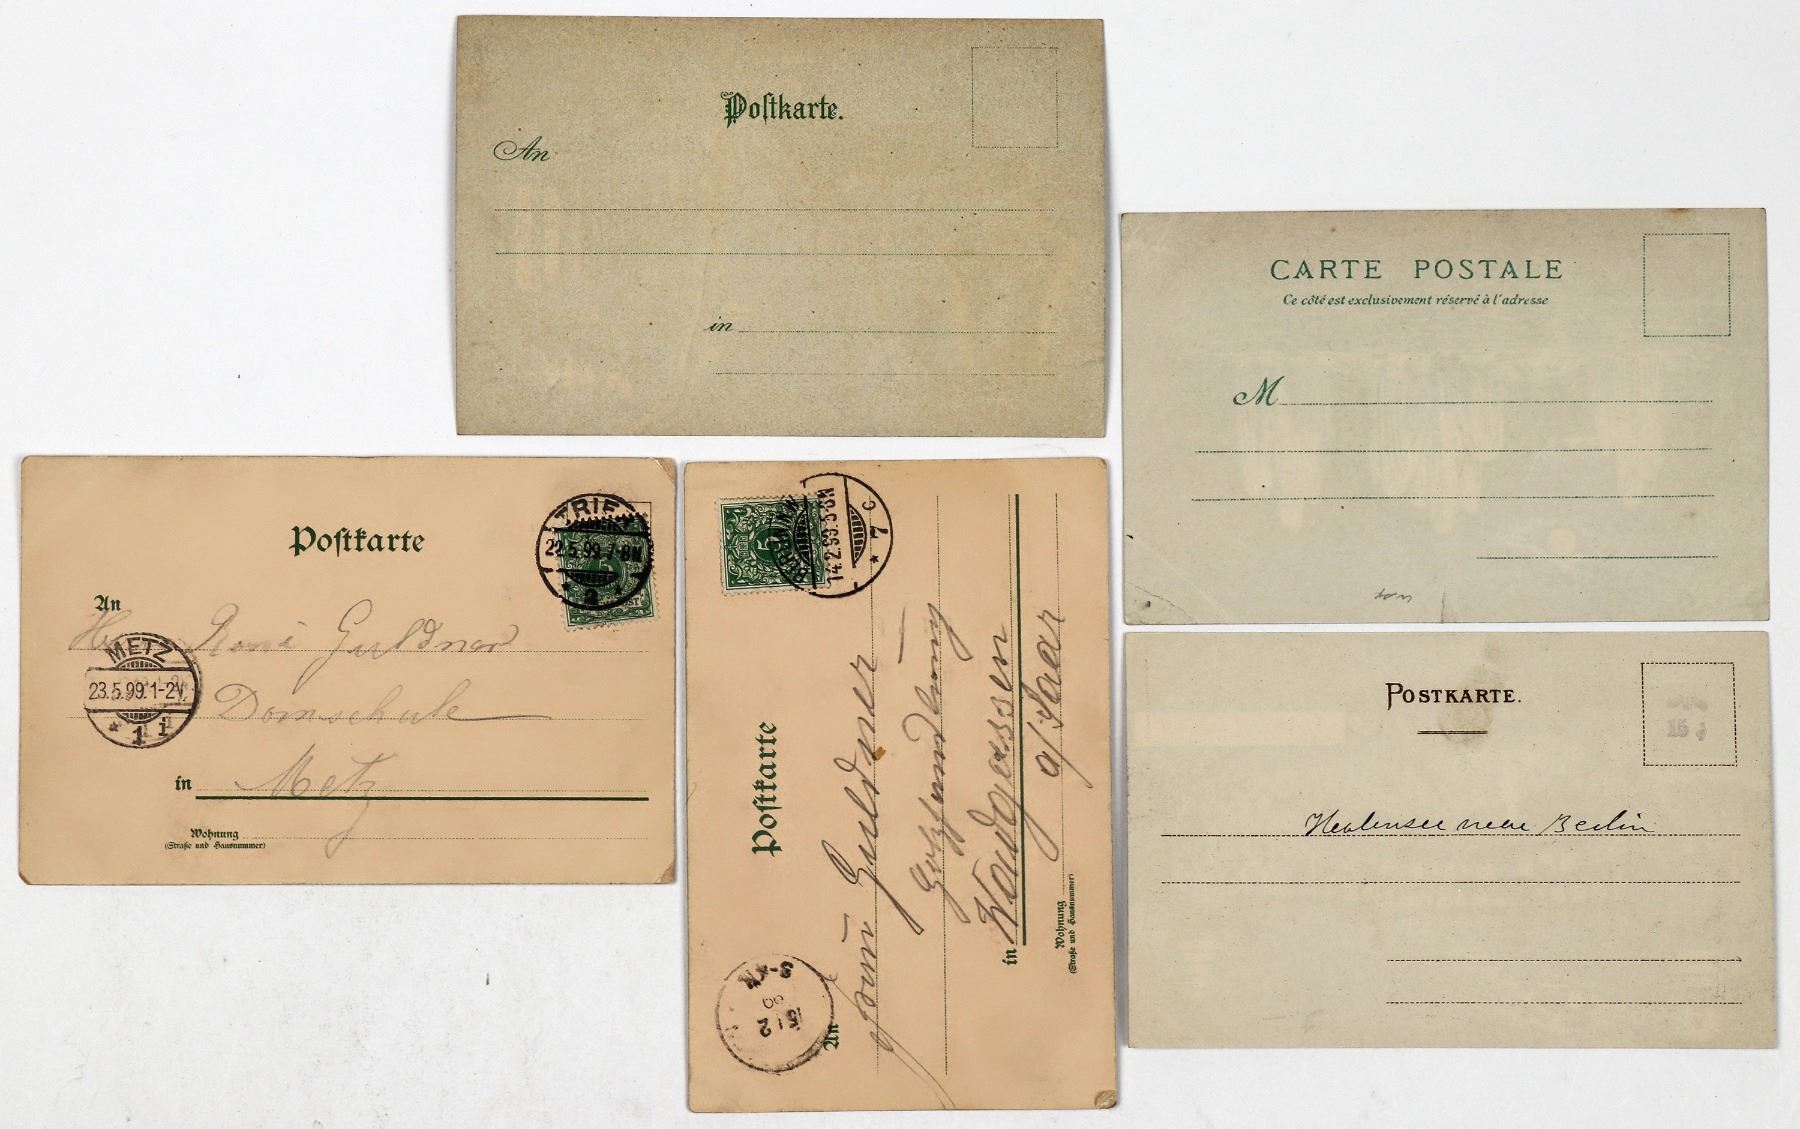 Postkarte.
An
in
CARTE POSTALE
Ce côté est exclusivement réservé à l'adresse
M
Postkarte
TRIER
22.5.99.7-8N.
* 2 i
5
An
Herr René Guldner
METZ
23.5.99.1-2V.
* 1 i
Domschule
in Metz
Wohnung
(Straße und Hausnummer)
Postkarte
14.2.99.
5
15 2
99
An
Guldner
Holzhandlung
in Wadgassen
a/Saar
Wohnung
(Straße und Hausnummer)
POSTKARTE.
15
Halensee Berlin